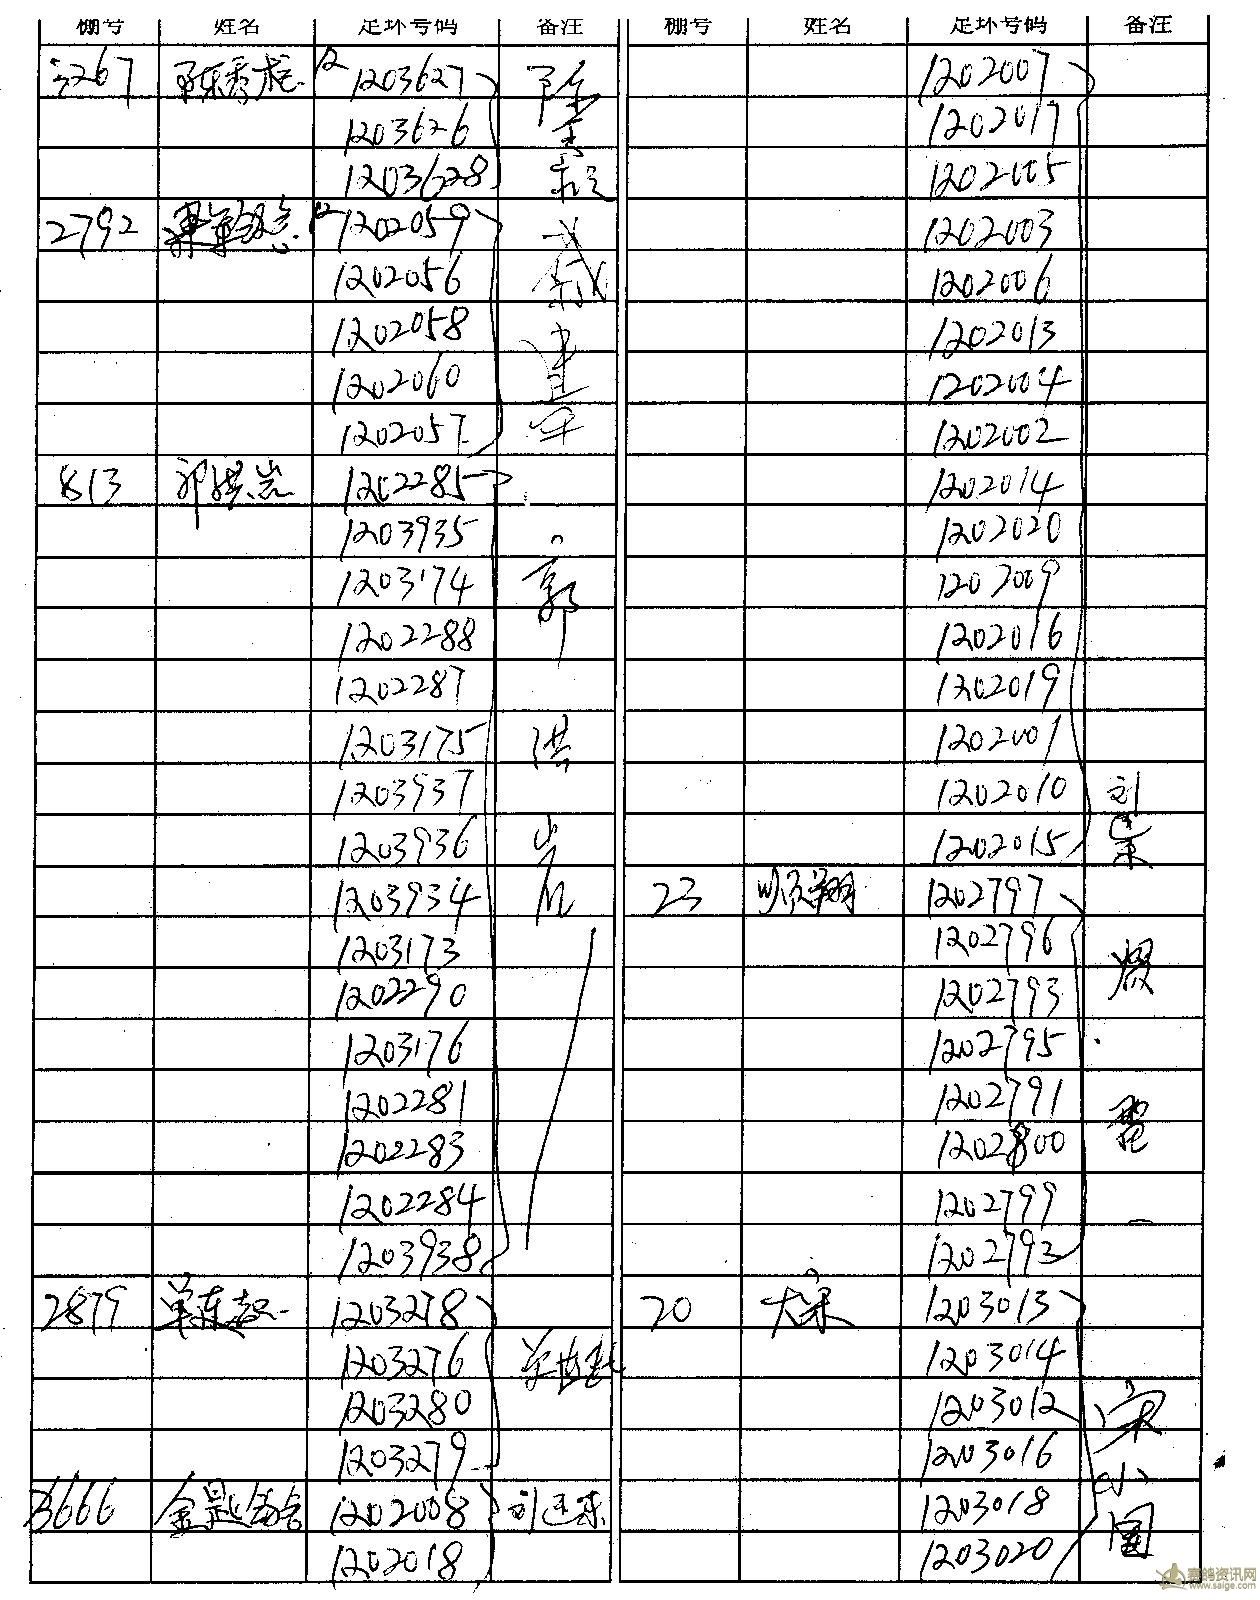 棚号 姓名 足环号码 备注
3267 陈秀 12 1203627
1203626
1203628
2792 12 1202059
1202056
1202058
1202060 建
1202057 军
813 郭洪岩 1202285
1203935
1203174 郭
1202288
1202287
1203175 洪
1203937
1203936 岩
1203934
1203173
1202290
1203176
1202281
1202283
1202284
1203938
2879 单连起 1203278
1203276 单连起
1203280
1203279
3666 金 鸽舍 1202008 刘
1202018
棚号 姓名 足环号码 备注
1202007
1202017
1202005
1202003
1202006
1202013
1202004
1202002
1202014
1202020
1202009
1202016
1202019
1202001
1202010 刘
1202015
23 顺翔 1202797
1202796
1202793
1202795
1202791
1202800
1202799
1202793
20 大宋 1203013
1203014
1203012 宋
1203016 小
1203018 国
1203020
赛鸽资讯网
www.saige.com